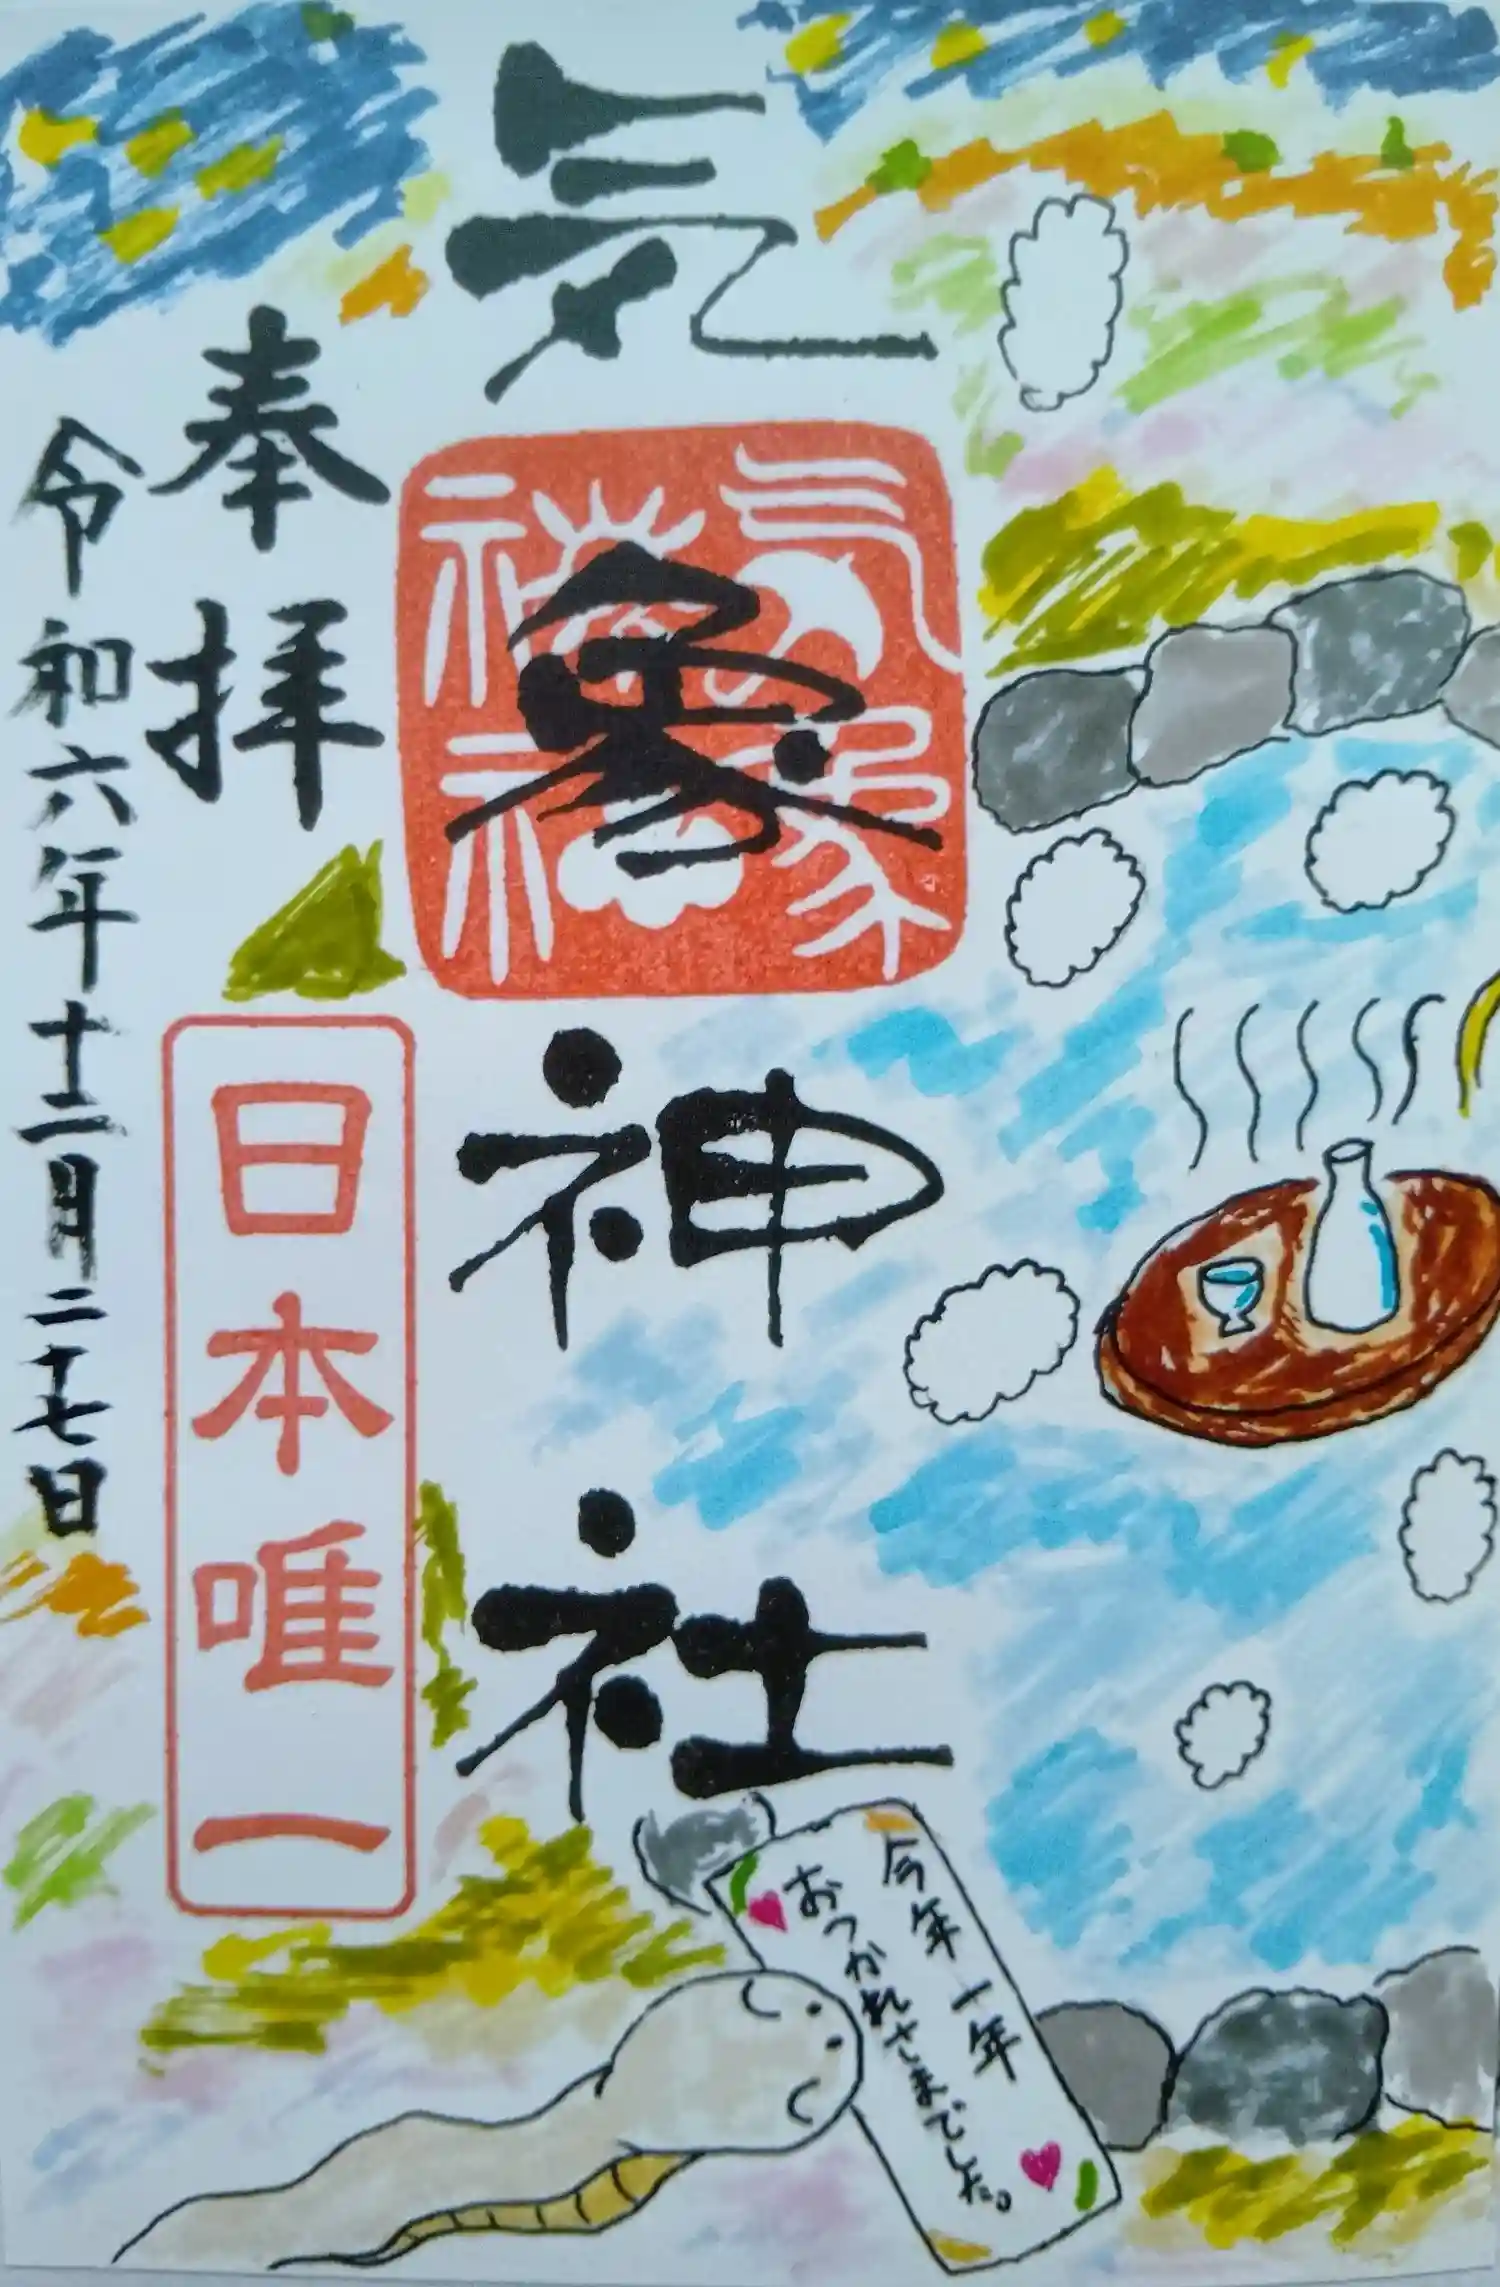 気象神社
気象神社
奉拝
日本唯一
令和六年十二月二十七日
今年一年
おつかれさまでした。